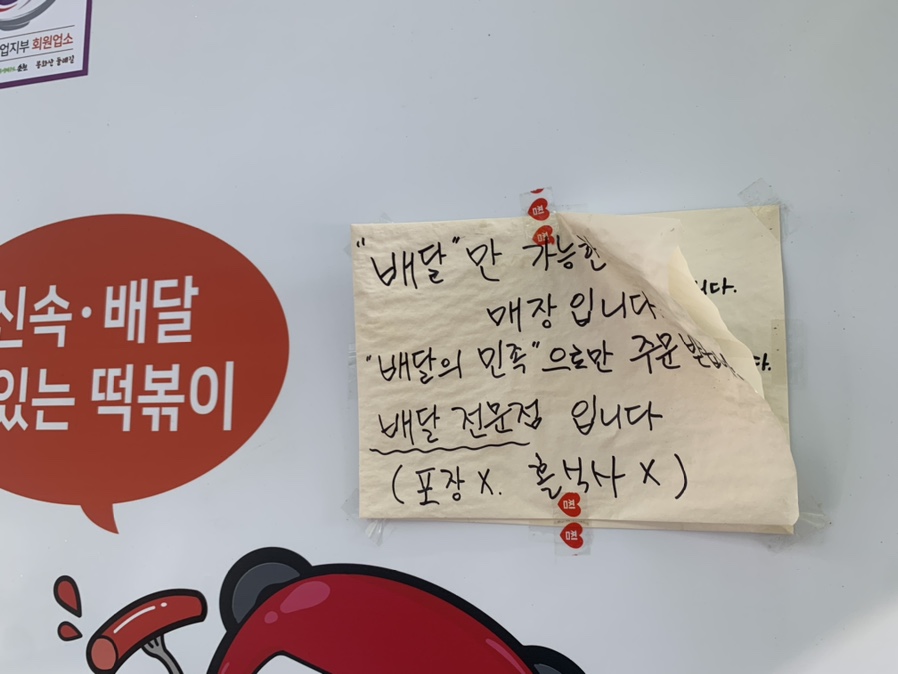 업지부 회원업소
신속·배달
있는 떡볶이
"배달"만 가능한
매장입니다
"배달의 민족"으로만 주문
배달 전문점 입니다
(포장X. 홀식사X)
니다.
다.